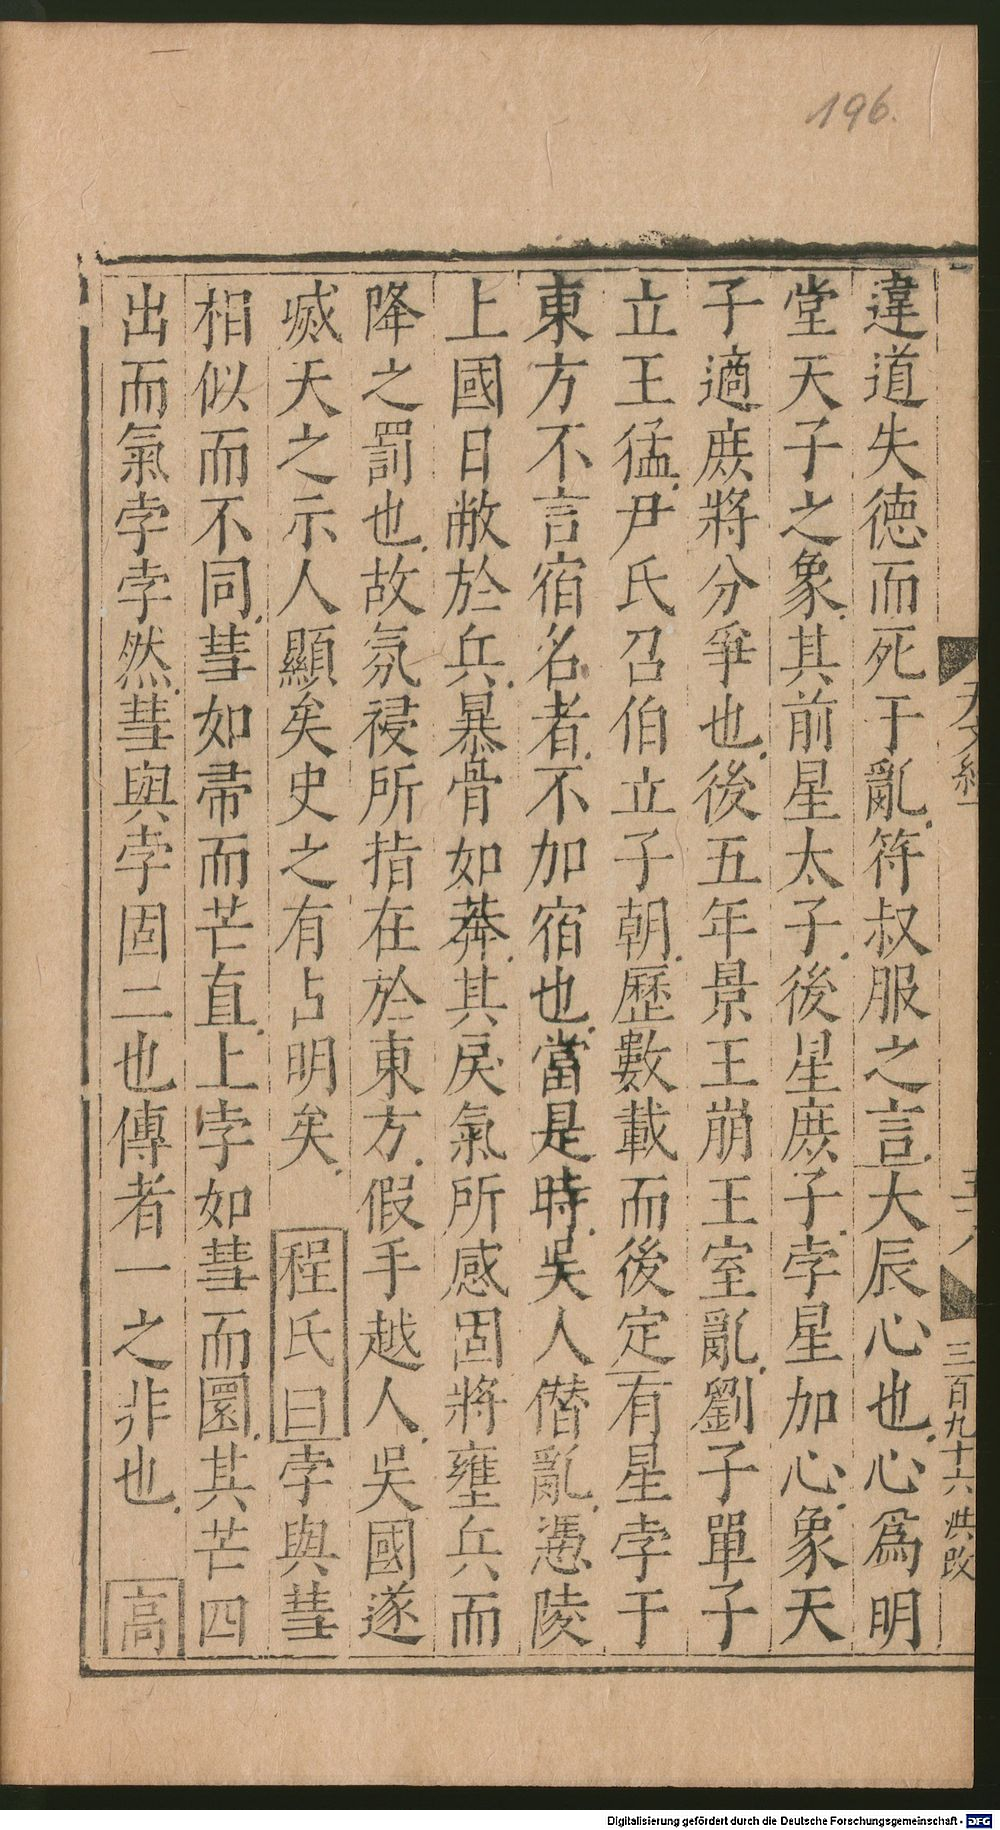 196.
違道失德而死于亂符叔服之言大辰心也心爲明
堂天子之象其前星太子後星庶子孛星加心象天
子適庶將分爭也後五年景王崩王室亂劉子單子
立王猛尹氏召伯立子朝歷數載而後定有星孛于
東方不言宿名者不加宿也當是時吳人僣亂憑陵
上國日敝於兵暴骨如莽其戾氣所感固將壅兵而
降之罰也故氛祲所指在於東方假手越人吳國遂
滅天之示人顯矣史之有占明矣 程氏曰孛與彗
相似而不同彗如帚而芒直上孛如彗而圜其芒四
出而氣孛孛然彗與孛固二也傳者一之非也 高
三百九十六 洪改
Digitalisierung gefördert durch die Deutsche Forschungsgemeinschaft - DFG